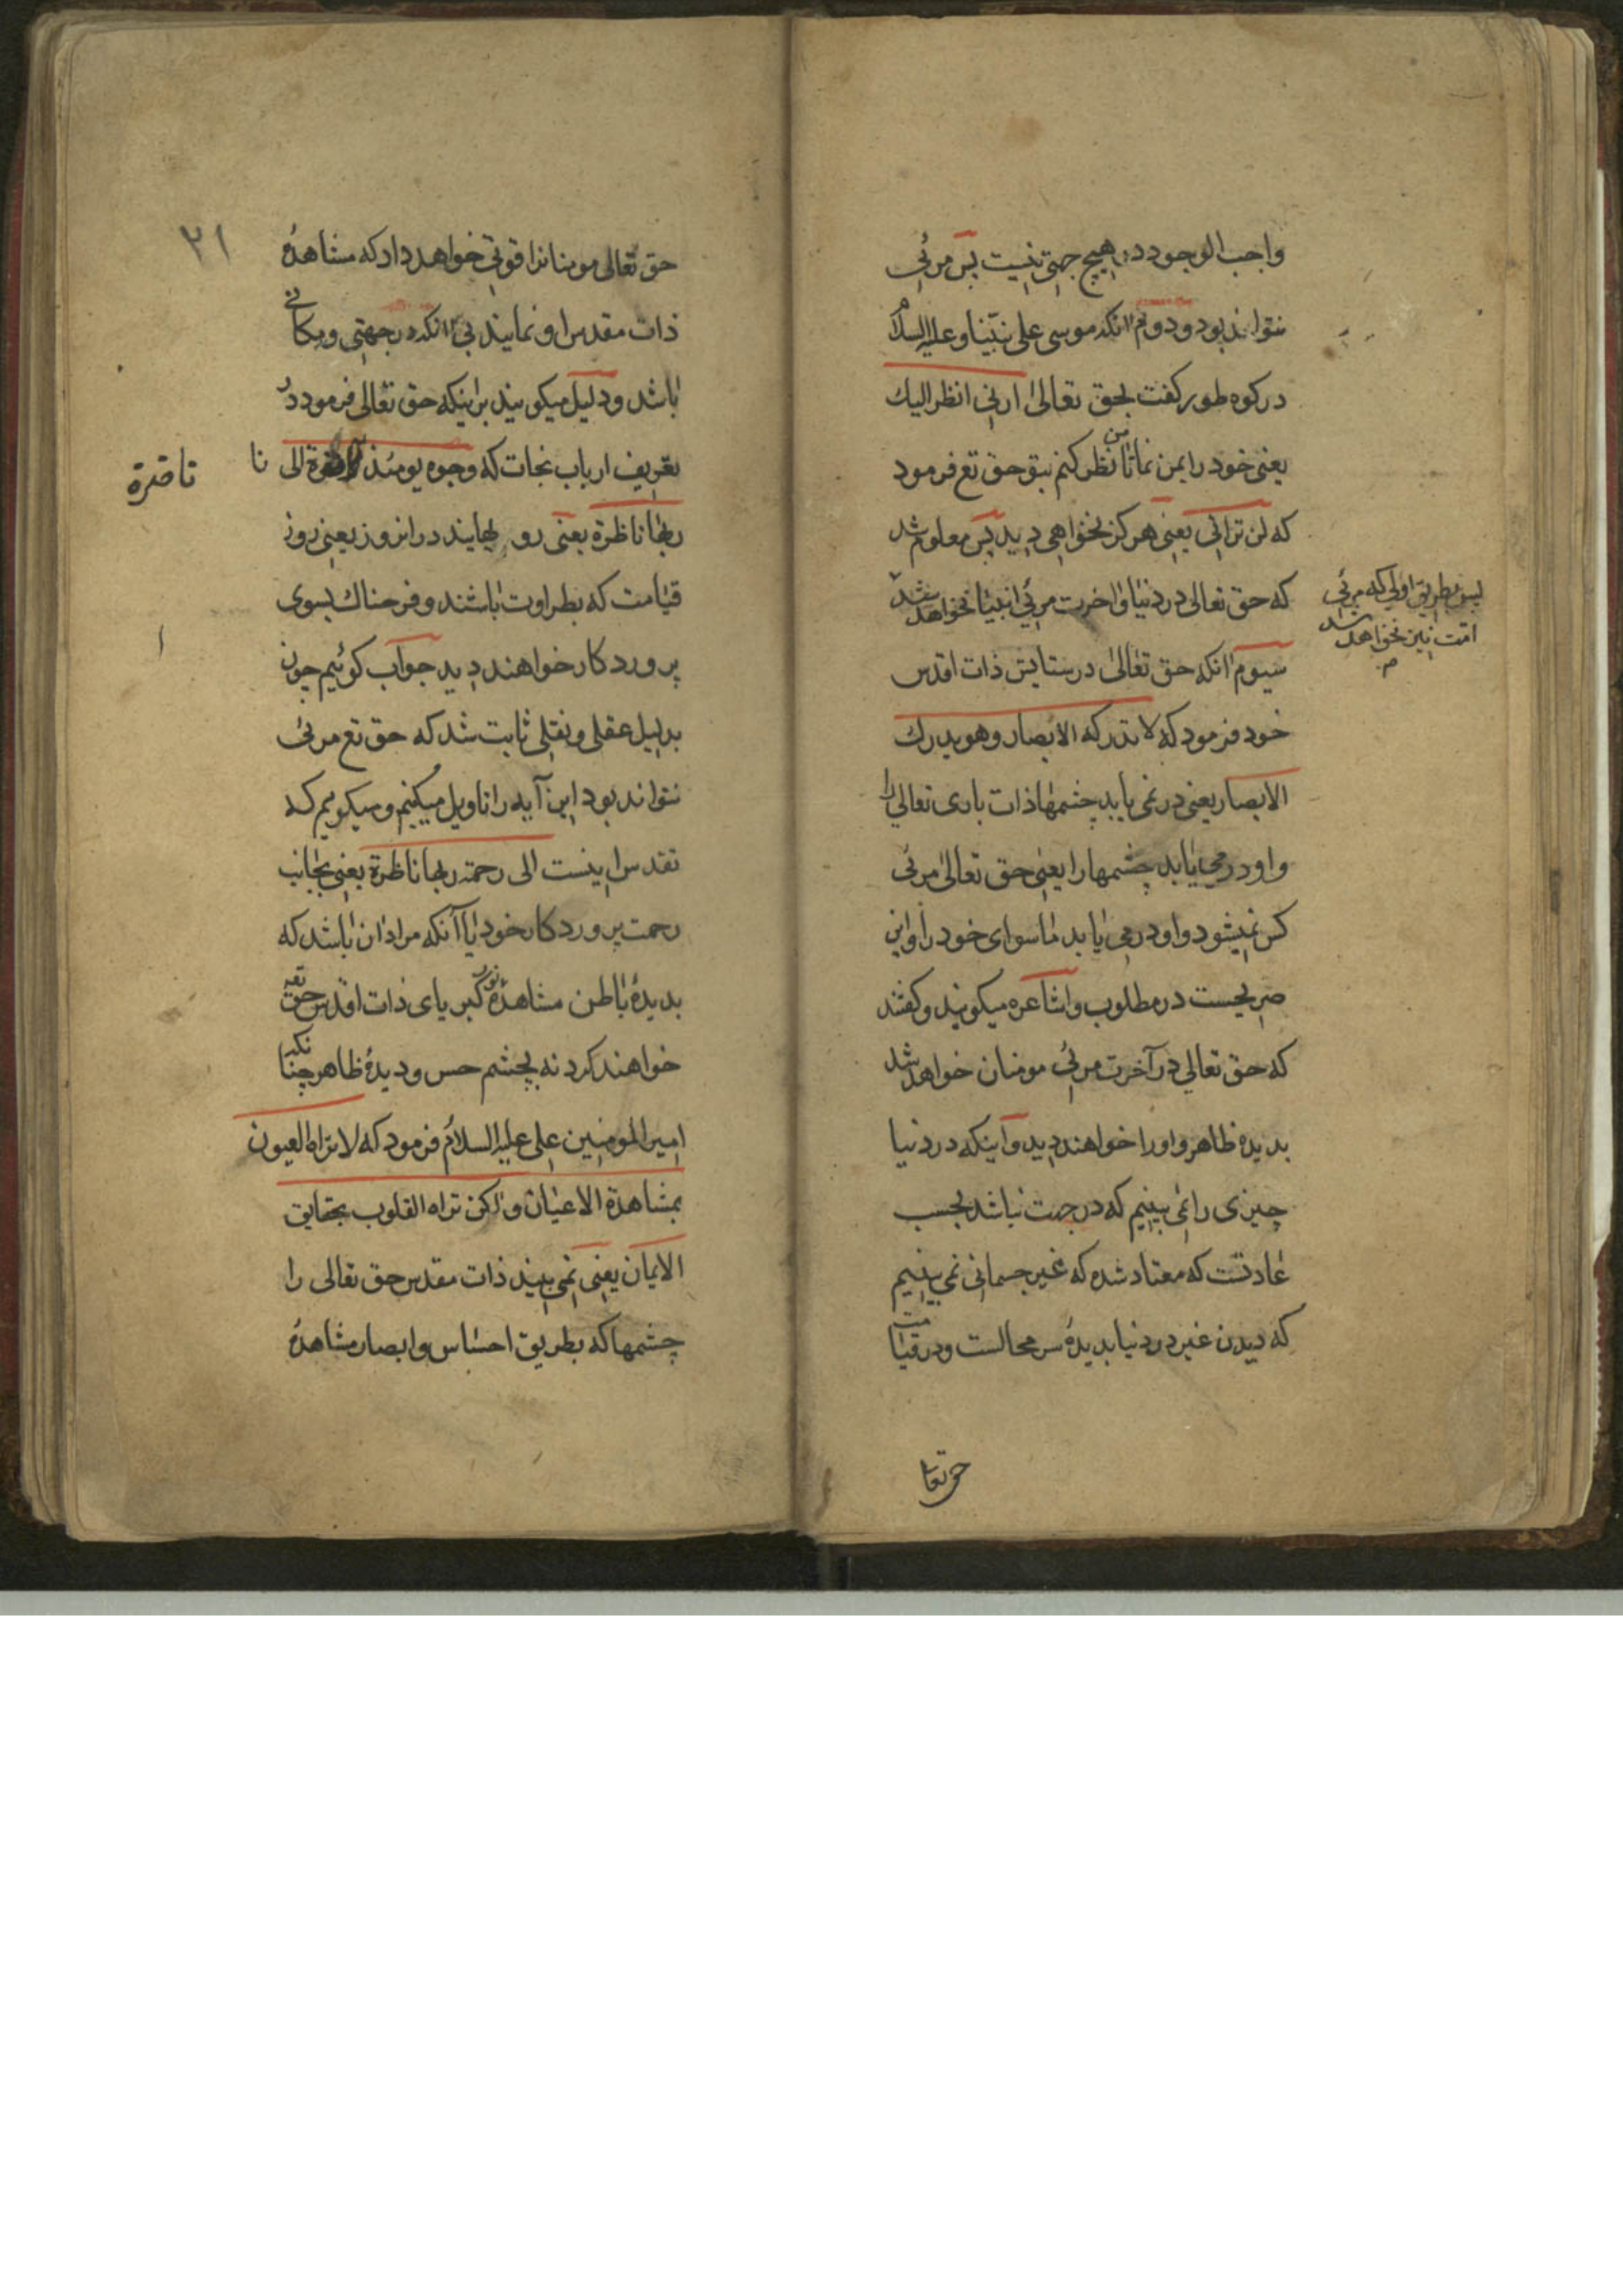 واجب الوجود در هیچ جهتی نیست پس مرئی
نتواند بود و دوم انکه موسی علی نبینا و علیه السلام
در کوه طور کفت بحق تعالی ارنی انظر الیك
یعنی خود را بمن نما تا من نظر کنم بتو حق تع فرمود
که لن ترانی یعنی هرکز نخواهی دید پس معلوم شد
که حق تعالی در دنیا و اخرت مرئی انبیا نخواهد شد
پس بطریق اولی که مرئی
امت نیز نخواهد شد
سیوم انکه حق تعالی در ستایش ذات اقدس
خود فرمود که لا تدرکه الابصار و هو یدرك
الابصار یعنی در نمی یابد چشمها ذات باری تعالی را
و او در می یابد چشمها را یعنی حق تعالی مرئی
کس نمیشود و او در می یابد ماسوای خود را و این
صریحست در مطلوب و اشاعره میکویند و کفتند
که حق تعالی در آخرت مرئی مومنان خواهد شد
بدیده ظاهر و او را خواهند دید و اینکه در دنیا
چیزی را نمی بینیم که در جهت نباشد بحسب
عادتست که معتاد شده که غیر جسمانی نمی بینیم
که دیدن غیر در دنیا بدیدۀ سر محالست و در قیامت
حق تعا
۲۱
حق تعالی مومنانرا قوتی خواهد داد که مشاهدۀ
ذات مقدس او نمایند بی انکه در جهتی و مکانی
باشد و دلیل میکویند بر اینکه حق تعالی فرمود در
تعریف ارباب نجات که وجوه یومئذ ناضرة الی
نا
ناضرة
ربها ناظرة یعنی رو بهایند در انروز یعنی روز
قیامت که بطراوت باشند و فرحناك بسوی
پروردکار خواهند دید جواب کوئیم چون
بدلیل عقلی و نقلی ثابت شد که حق تع مرئی
نتواند بود این آیه را تاویل میکنیم و میکوییم که
تقدیرش اینست الی رحمة ربها ناظرة یعنی بجانب
رحمت پروردکار خود یا آنکه مراد ان باشد که
بدیدۀ باطن مشاهدۀ نور کبریای ذات اقدس حق
خواهند کرد نه بچشم حس و دیدۀ ظاهر چنانکه
امیر المومنین علی علیه السلام فرمود که لا تراه العیون
بمشاهدة الاعیان و لکن تراه القلوب بحقایق
الایمان یعنی نمی بیند ذات مقدس حق تعالی را
چشمها که بطریق احساس و ابصار مشاهدۀ